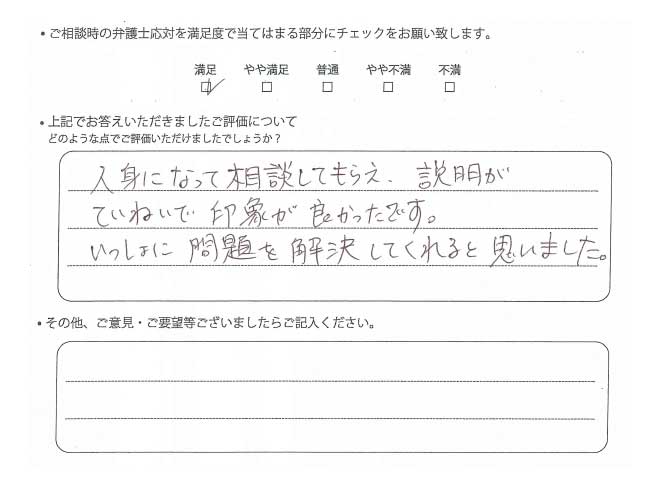 • ご相談時の弁護士応対を満足度で当てはまる部分にチェックをお願い致します。
満足 やや満足 普通 やや不満 不満
• 上記でお答えいただきましたご評価について
どのような点でご評価いただけましたでしょうか？
入身になって相談してもらえ、説明が
ていねいで印象が良かったです。
いっしょに問題を解決してくれると思いました。
• その他、ご意見・ご要望等ございましたらご記入ください。